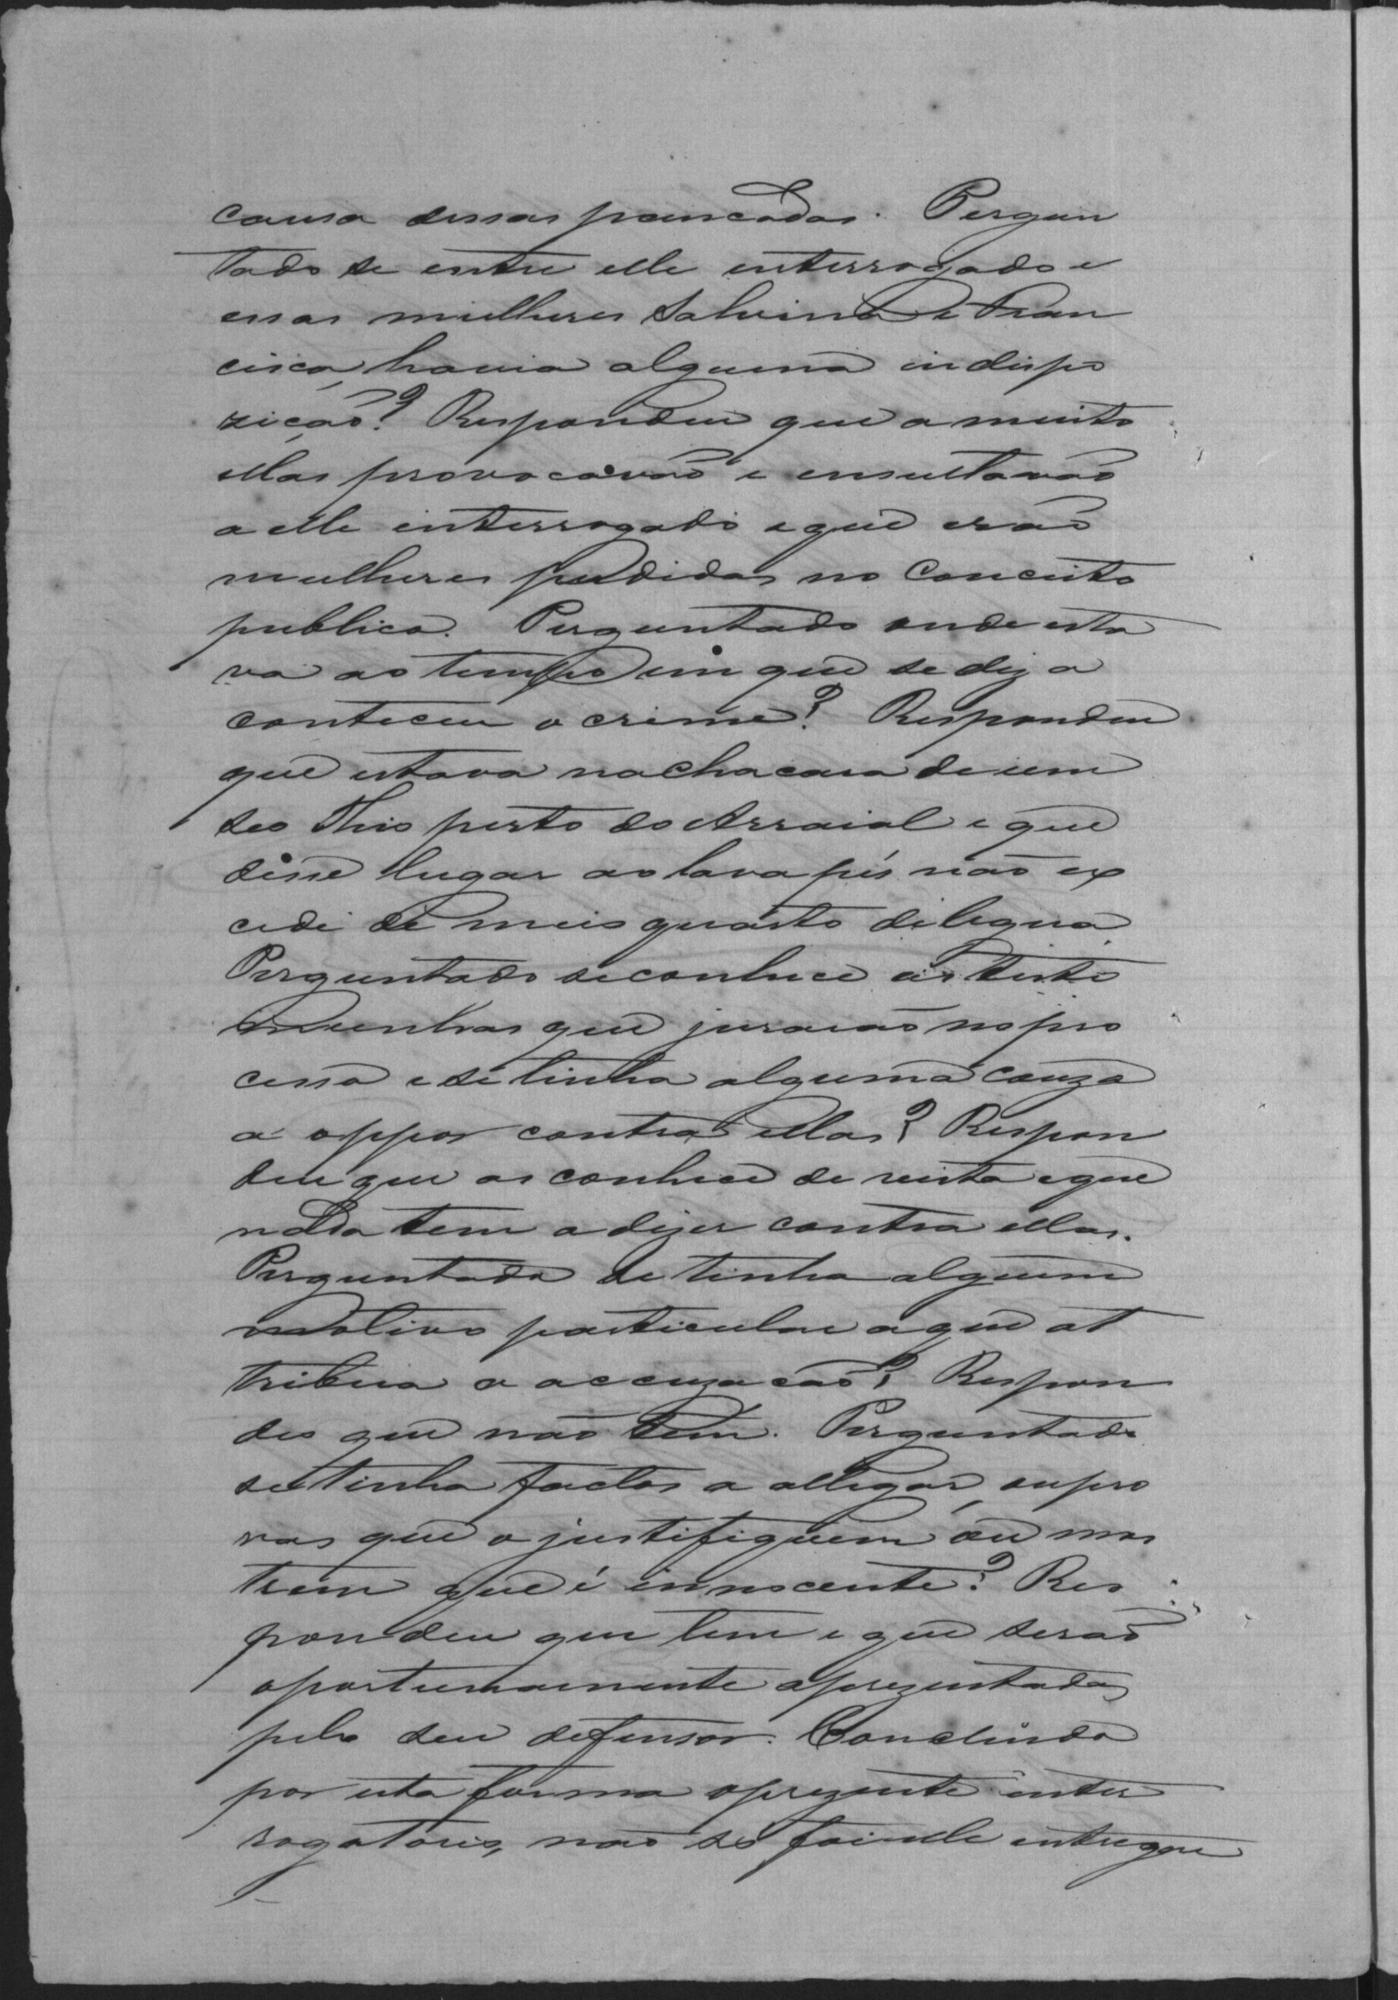 causa dessas pancadas. Pergun
tado se entre elle enterrogado e
essas mulheres Salvina e Fran
cisca, havia alguma indispo
zicão? Respondeu que a muito
ellas provocavão e ensultavão
a elle enterrogado e que erão
mulheres perdidas no conceito
publico. Perguntado onde esta
va ao tempo em que se diz a
conteceu o crime? Respondeu
que estava na chacara de um
seo Thio perto do Arraial e que
desse lugar ao lava pés não ex
cede de meio quarto de legua
Perguntado se conhece as teste
munhas que jurarão no pro
cesso e se tinha alguma couza
a oppor contra ellas? Respon
deu que as conhece de vista e que
nada tem a dizer contra ellas.
Perguntado se tinha algum
motivo particular a que at
tribua a accuzacão? Respon
deo que não tem. Perguntado
se tinha factos a allegar ou pro
vas que o justifiquem ou mos
trem que é innocente? Res
pondeu que tem e que serão
oportunamente aprezentadas
pelo seu defensor. Concluido
por esta forma o prezente inter
rogatorio, não só foi elle entregue